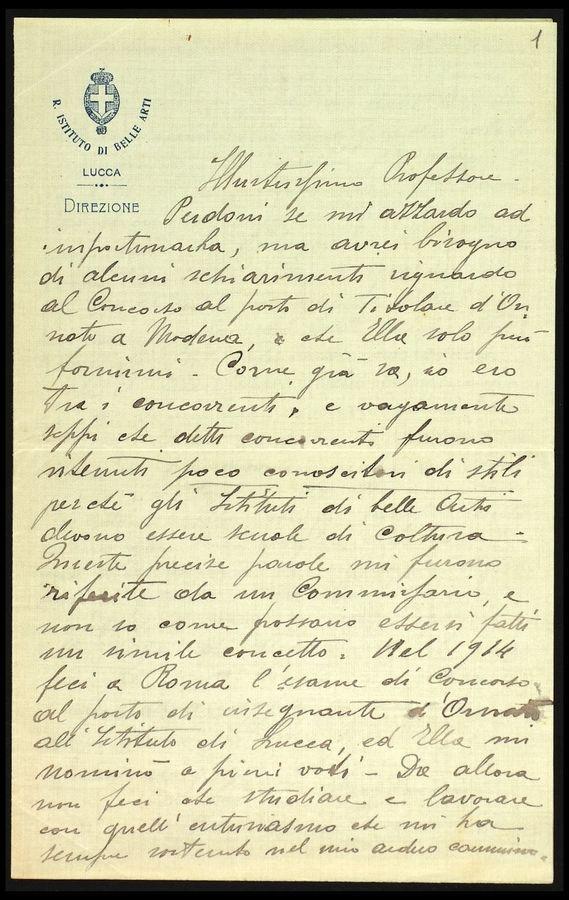 1
R. ISTITUTO DI BELLE ARTI
LUCCA
DIREZIONE
Illustrissimo Professore -
Perdoni se mi azzardo ad
importunarla, ma avrei bisogno
di alcuni schiarimenti riguardo
al Concorso al posto di Titolare d'Or-
nato a Modena, e che Ella solo può
fornirmi - Come già sa, io ero
tra i concorrenti, e vagamente
seppi che detti concorrenti furono
ritenuti poco conoscitori di stili
perché gli Istituti di belle Arti
devono essere scuole di coltura -
Queste precise parole mi furono
riferite da un Commissario, e
non so come possano essersi fatti
un simile concetto. Nel 1914
feci a Roma l'esame di Concorso
al posto di insegnante d'Ornato
all'Istituto di Lucca, ed Ella mi
nominò a pieni voti - Da allora
non feci che studiare e lavorare
con quell'entusiasmo che mi ha
sempre sostenuto nel mio arduo cammino.